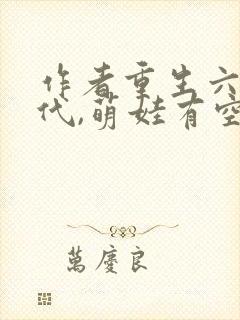 作者重生六
代,萌娃有空
萬慶良